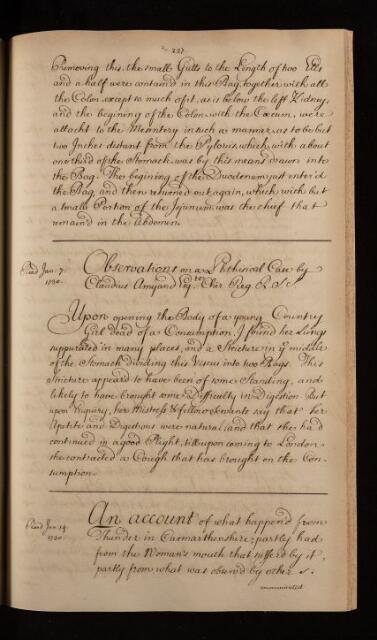 227
Removing this, the small Gutts to the Length of two Ells
and a half were contain'd in this Bag, together with all
the Colon, except so much of it, as is below the left Kidney,
and the begining of the Colon with the Cœcum, were
attacht to the Mesentery in such a manner, as to be but
two Inches distant from the Pylorus, which, with about
one third of the Stomach, was by this means drawn into
the Bag. The begining of the Duodenum just enter'd
the Bag, and then return'd out again, which with but
a small Portion of the Jejunum was the chief that
remain'd in the Abdomen.
Read Jan. 7.
1730.
Observations on a Phthisical Case by
Claudius Amyand Esq. Chir. Reg. R. S. S.
Upon opening the Body of a young Country
Girl dead of a Consumption, I found her Lungs
suppurated in many places, and a Stricture in ye middle
of the Stomach dividing this Viscus into two Bags. This
Stricture appeared to have been of some Standing, and
likely to have brought some Difficulty in Digestion. But
upon Enquiry, her Mistress & fellow Servants say that her
Apetite and Digestions were natural, and that she had
continued in a good Plight, till upon coming to London
she contracted a Cough that has brought on the Con-
sumption.
Read Jan. 14.
1730.
An account of what happen'd from
Thunder in Carmarthenshire; partly had
from the Woman's mouth that suffer'd by it,
partly from what was observ'd by others.
communicated